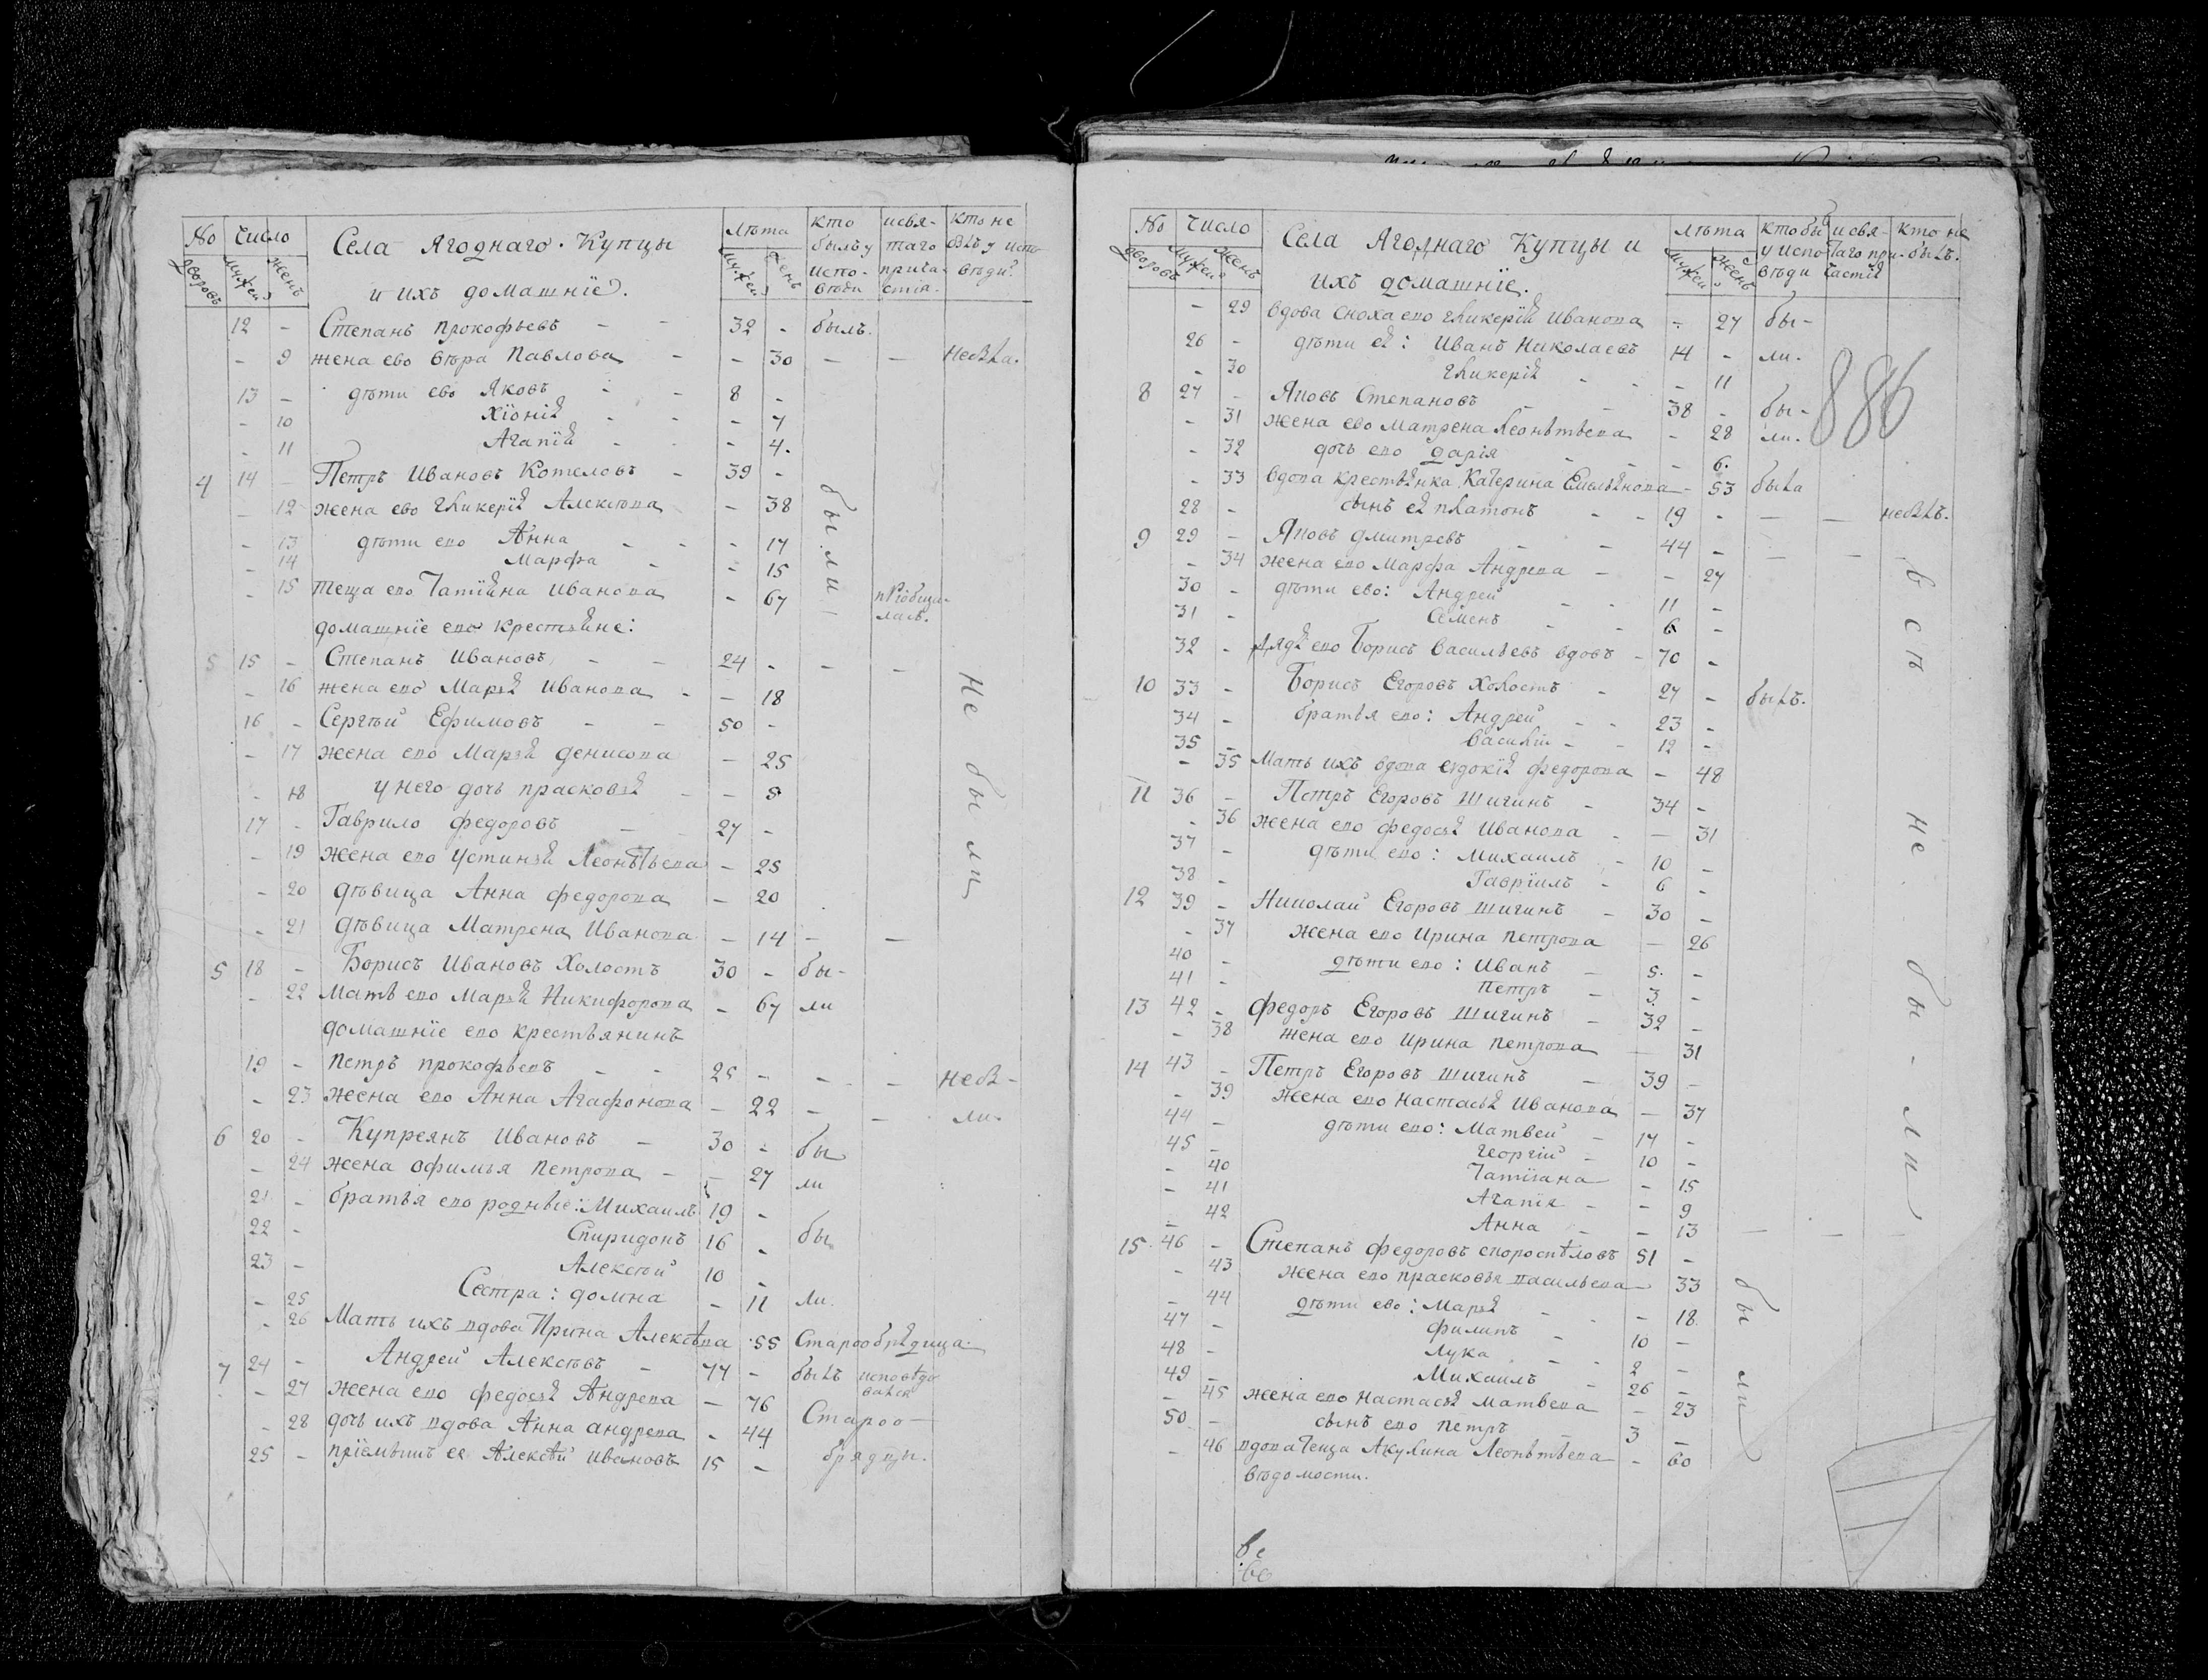 No Число Села Ягоднаго Купцы Лѣта кто исвя- кто не
дворовъ мужей женъ и ихъ домашніе. мужей женъ былъ у таго былъ у испо
испо- прича- вѣди
вѣди стія.
12 - Степанъ Прокофьевъ - - 32 - былъ.
- 9 жена ево Вѣра Павлова - - 30 - - небыла.
13 - дѣти ево Яковъ - - 8 -
- 10 Хіонія - - - 7
- 11 Агапія - - - 4.
4 14 - Петръ Ивановъ Котеловъ - 39 -
- 12 жена ево Гликерія Алексѣва - 38
- 13 дѣти ево Анна - - - 17
- 14 Марфа - - 15
были
- 15 теща ево Татіяна Иванова - 67 пріобща-
лась.
домашніе ево крестьяне:
5 15 - Степанъ Ивановъ - - 24 - - -
- 16 жена ево Марья Иванова - - 18
16 - Сергѣй Ефимовъ - - 50 -
- 17 жена ево Марья Денисова - 25
- 18 у него дочь Прасковья - - 8
17 - Гаврило Федоровъ - - 27 -
- 19 жена ево Устинья Леонтьева - 25
- 20 дѣвица Анна Федорова - 20
- 21 дѣвица Матрена Иванова - 14 - -
не были
5 18 - Борисъ Ивановъ Холостъ 30 - бы-
- 22 Мать ево Марья Никифорова - 67 ли
домашніе ево крестьянинъ
19 - Петръ Прокофьевъ - - 25 - - - небы-
- 23 жена ево Анна Агафонова - 22 - - ли.
6 20 - Купреянъ Ивановъ - 30 - бы
- 24 жена Офимья Петрова - - 27 ли
21 - братья ево родные: Михаилъ 19 -
22 - Спиридонъ 16 - бы
23 - Алексѣй 10 -
- 25 Сестра: Домна - 11 ли.
- 26 Мать ихъ вдова Ирина Алексѣва 55 Старообрядица
7 24 - Андрей Алексѣвъ - 77 - былъ исповѣдо
вался
- 27 жена ево Федосья Андрева - 76
- 28 дочь ихъ вдова Анна Андрева - 44 Староо
25 - пріемышъ ея Алексѣй Ивановъ 15 - брядцы.
No Число Села Ягоднаго Купцы и Лѣта кто бы исвя- кто не
дворовъ мужей женъ ихъ домашніе. мужей женъ у испо таго при- былъ.
вѣди частія
- 29 вдова сноха ево Гликерія Иванова - 27 бы-
26 - дѣти ея: Иванъ Николаевъ 14 - ли.
- 30 Гликерія - - - 11
886
8 27 - Яковъ Степановъ - - 38 - бы-
- 31 жена ево Матрена Леонтьева - 28 ли.
- 32 дочь ево Дарія - - - 6.
- 33 вдова крестьянка Катерина Емельянова - 53 была
28 - сынъ ея Платонъ - - 19 - - - небылъ.
9 29 - Яковъ Дмитревъ - - 44 - - - -
- 34 жена ево Марфа Андрева - - 27
30 - дѣти ево: Андрей - - 11 -
31 - Семенъ - - 6 -
32 - Дядя ево Борисъ Васильевъ вдовъ - 70 -
10 33 - Борисъ Егоровъ Холостъ - 27 - былъ.
34 - братья ево: Андрей - - 23 -
35 - Василій - - 12 -
- 35 Мать ихъ вдова Евдокія Федорова - 48
11 36 - Петръ Егоровъ Шигинъ - 34 -
- 36 жена ево Федосья Иванова - - 31
37 - дѣти ево: Михаилъ - 10 -
38 - Гавріилъ - 6 -
12 39 - Николай Егоровъ Шигинъ - 30 -
- 37 жена ево Ирина Петрова - 26
40 - дѣти ево: Иванъ - 5. -
41 - Петръ - 3. -
13 42 - Федоръ Егоровъ Шигинъ - 32 -
- 38 жена ево Ирина Петрова - 31
14 43 - Петръ Егоровъ Шигинъ - 39 -
- 39 жена ево Настасья Иванова - 37
44 - дѣти ево: Матвей - 17 -
45 - Георгій - 10 -
- 40 Татіана - 15
- 41 Агапія - - 9
- 42 Анна - - 13 - - -
не бы-ли
15. 46 - Степанъ Федоровъ Скороспѣловъ 51 -
- 43 жена ево Прасковья Васильева - 33
- 44 дѣти ево: Марья - - - 18.
47 - Филипъ - 10 -
48 - Лука - - 2 -
49 - Михаилъ - 26 -
- 45 жена ево Настасья Матвева - 23
50 - сынъ ево Петръ - 3 -
- 46 вдова теща Акулина Леонтьева - 60
были
вѣдомости.
ве